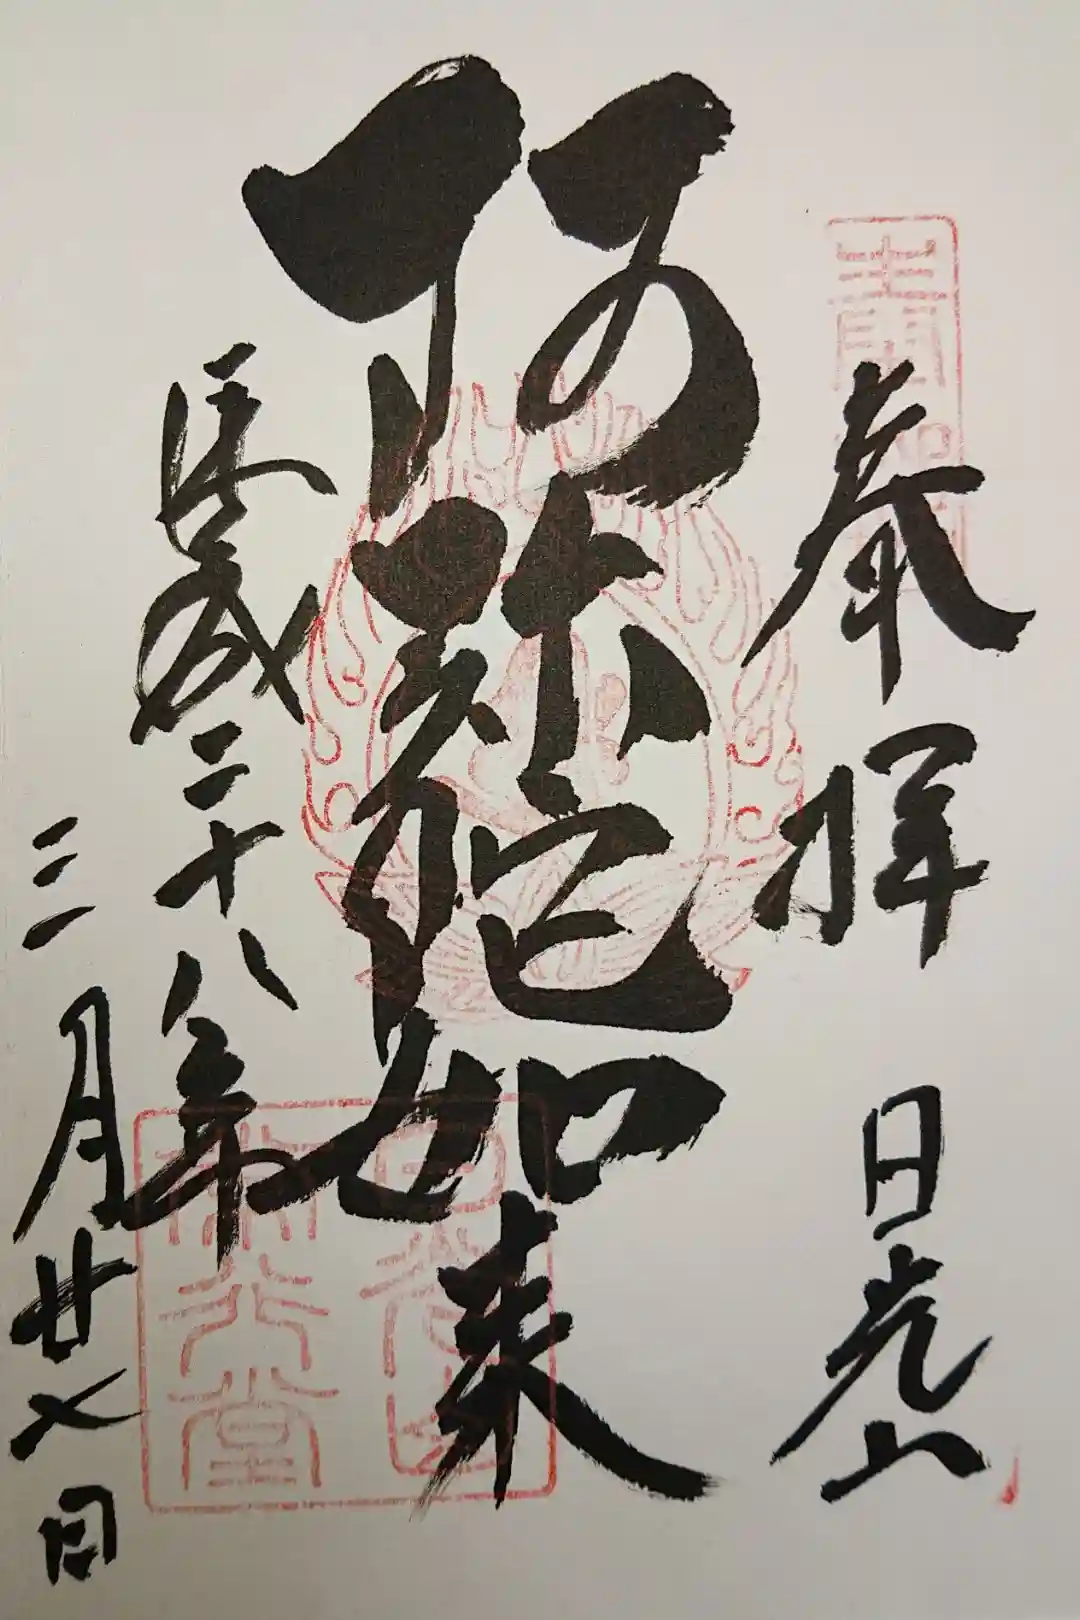 奉拝 日光山
阿弥陀如来
平成二十八年
三月廿七日